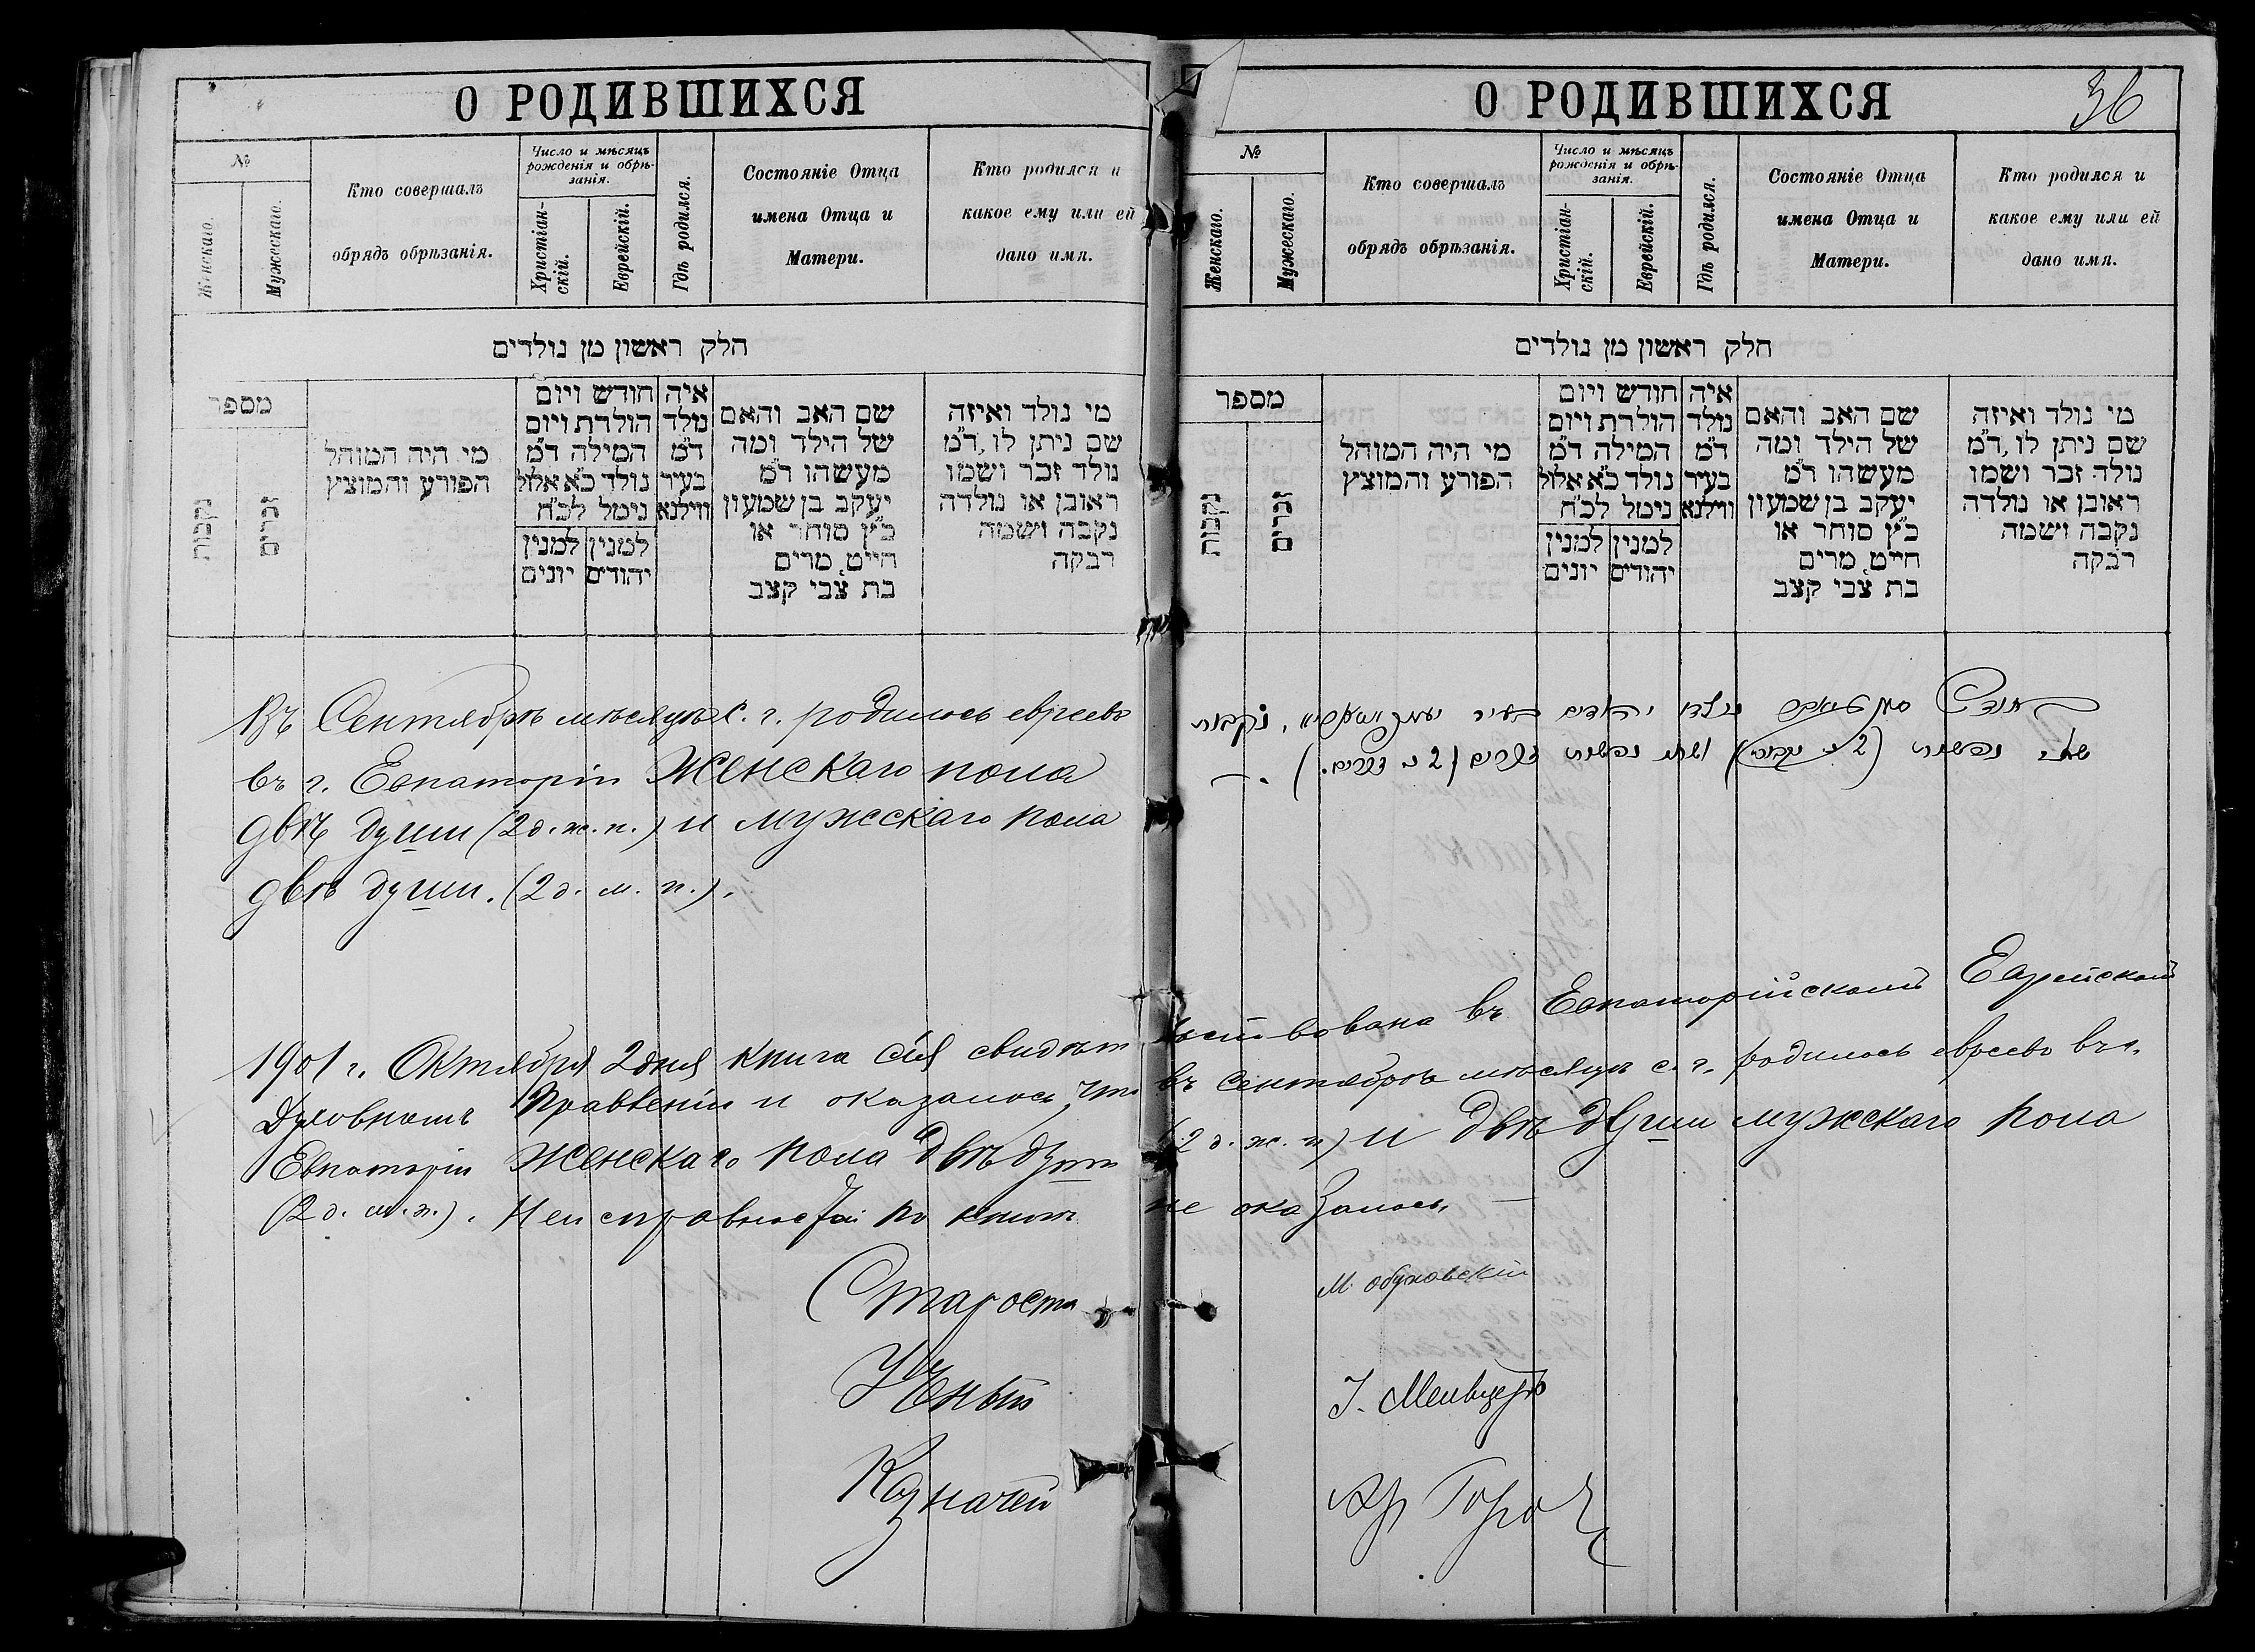 О РОДИВШИХСЯ
№
Женскаго.
Мужескаго.
Кто совершалъ
обрядъ обрѣзанія.
Число и мѣсяцъ
рожденія и обрѣ-
занія.
Христіан-
скій.
Еврейскій.
Гдѣ родился.
Состояніе Отца
имена Отца и
Матери.
Кто родился и
какое ему или ей
дано имя.
חלק ראשון מן נולדים
מספר
נקבות
זכרים
מי היה המוהל
הפורע והמוצץ
חודש ויום
הולדת ויום
המילה ד״מ
נולד כ״א אלול
נימל לכ״ח
למנין
יונים
למנין
יהודים
איה
נולד
ד״מ
בעיר
ווילנא
שם האב והאם
של הילד ומה
מעשהו ד״מ
יעקב בן שמעון
כ״ץ סוחר או
חייט, מרים
בת צבי קצב
מי נולד ואיזה
שם ניתן לו, ד״מ
נולד זכר ושמו
ראובן או נולדה
נקבה ושמה
רבקה
Въ Сентябрѣ мѣсяцѣ с. г. родилось евреевъ
въ г. Евпаторіи женскаго пола
двѣ души (2 д. ж. п.) и мужскаго пола
двѣ души. (2 д. м. п.).
О РОДИВШИХСЯ
36
№
Женскаго.
Мужескаго.
Кто совершалъ
обрядъ обрѣзанія.
Число и мѣсяцъ
рожденія и обрѣ-
занія.
Христіан-
скій.
Еврейскій.
Гдѣ родился.
Состояніе Отца
имена Отца и
Матери.
Кто родился и
какое ему или ей
дано имя.
חלק ראשון מן נולדים
מספר
נקבות
זכרים
מי היה המוהל
הפורע והמוצץ
חודש ויום
הולדת ויום
המילה ד״מ
נולד כ״א אלול
נימל לכ״ח
למנין
יונים
למנין
יהודים
איה
נולד
ד״מ
בעיר
ווילנא
שם האב והאם
של הילד ומה
מעשהו ד״מ
יעקב בן שמעון
כ״ץ סוחר או
חייט, מרים
בת צבי קצב
מי נולד ואיזה
שם ניתן לו, ד״מ
נולד זכר ושמו
ראובן או נולדה
נקבה ושמה
רבקה
נולדו יהודים בעיר נקבות
נפשות (2 נ. נקבות) ושתי נפשות זכרים (2 נ. זכרים.)
1901 г. Октября 2 дня книга сія свидѣтельствована въ Евпаторійскомъ Еврейскомъ
Духовномъ Правленіи и оказалось, что въ Сентябрѣ мѣсяцѣ с. г. родилось евреевъ въ г.
Евпаторіи женскаго пола двѣ души (2 д. ж. п.) и двѣ души мужскаго пола
(2 д. м. п.). Неисправностей по книгѣ не оказалось.
Староста М. Обуховскій
Ученый
Казначей